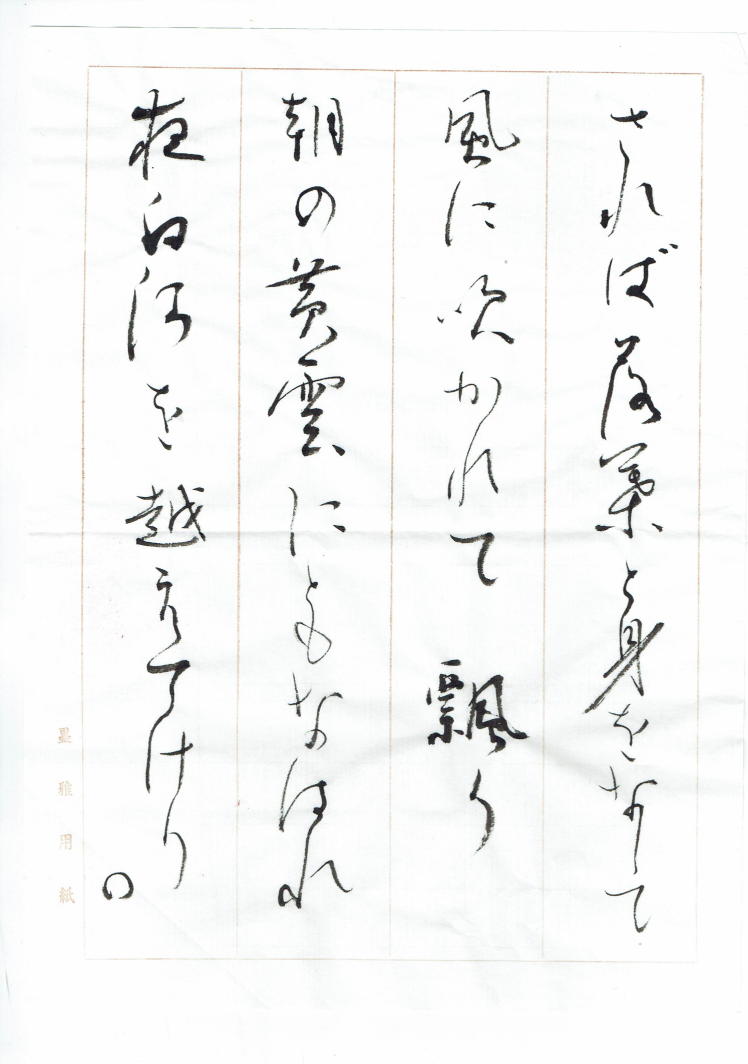 されば落葉と身をなして
風に吹かれて飄り
朝の黄雲にともなはれ
夜白河を越えてけり。
墨雅用紙